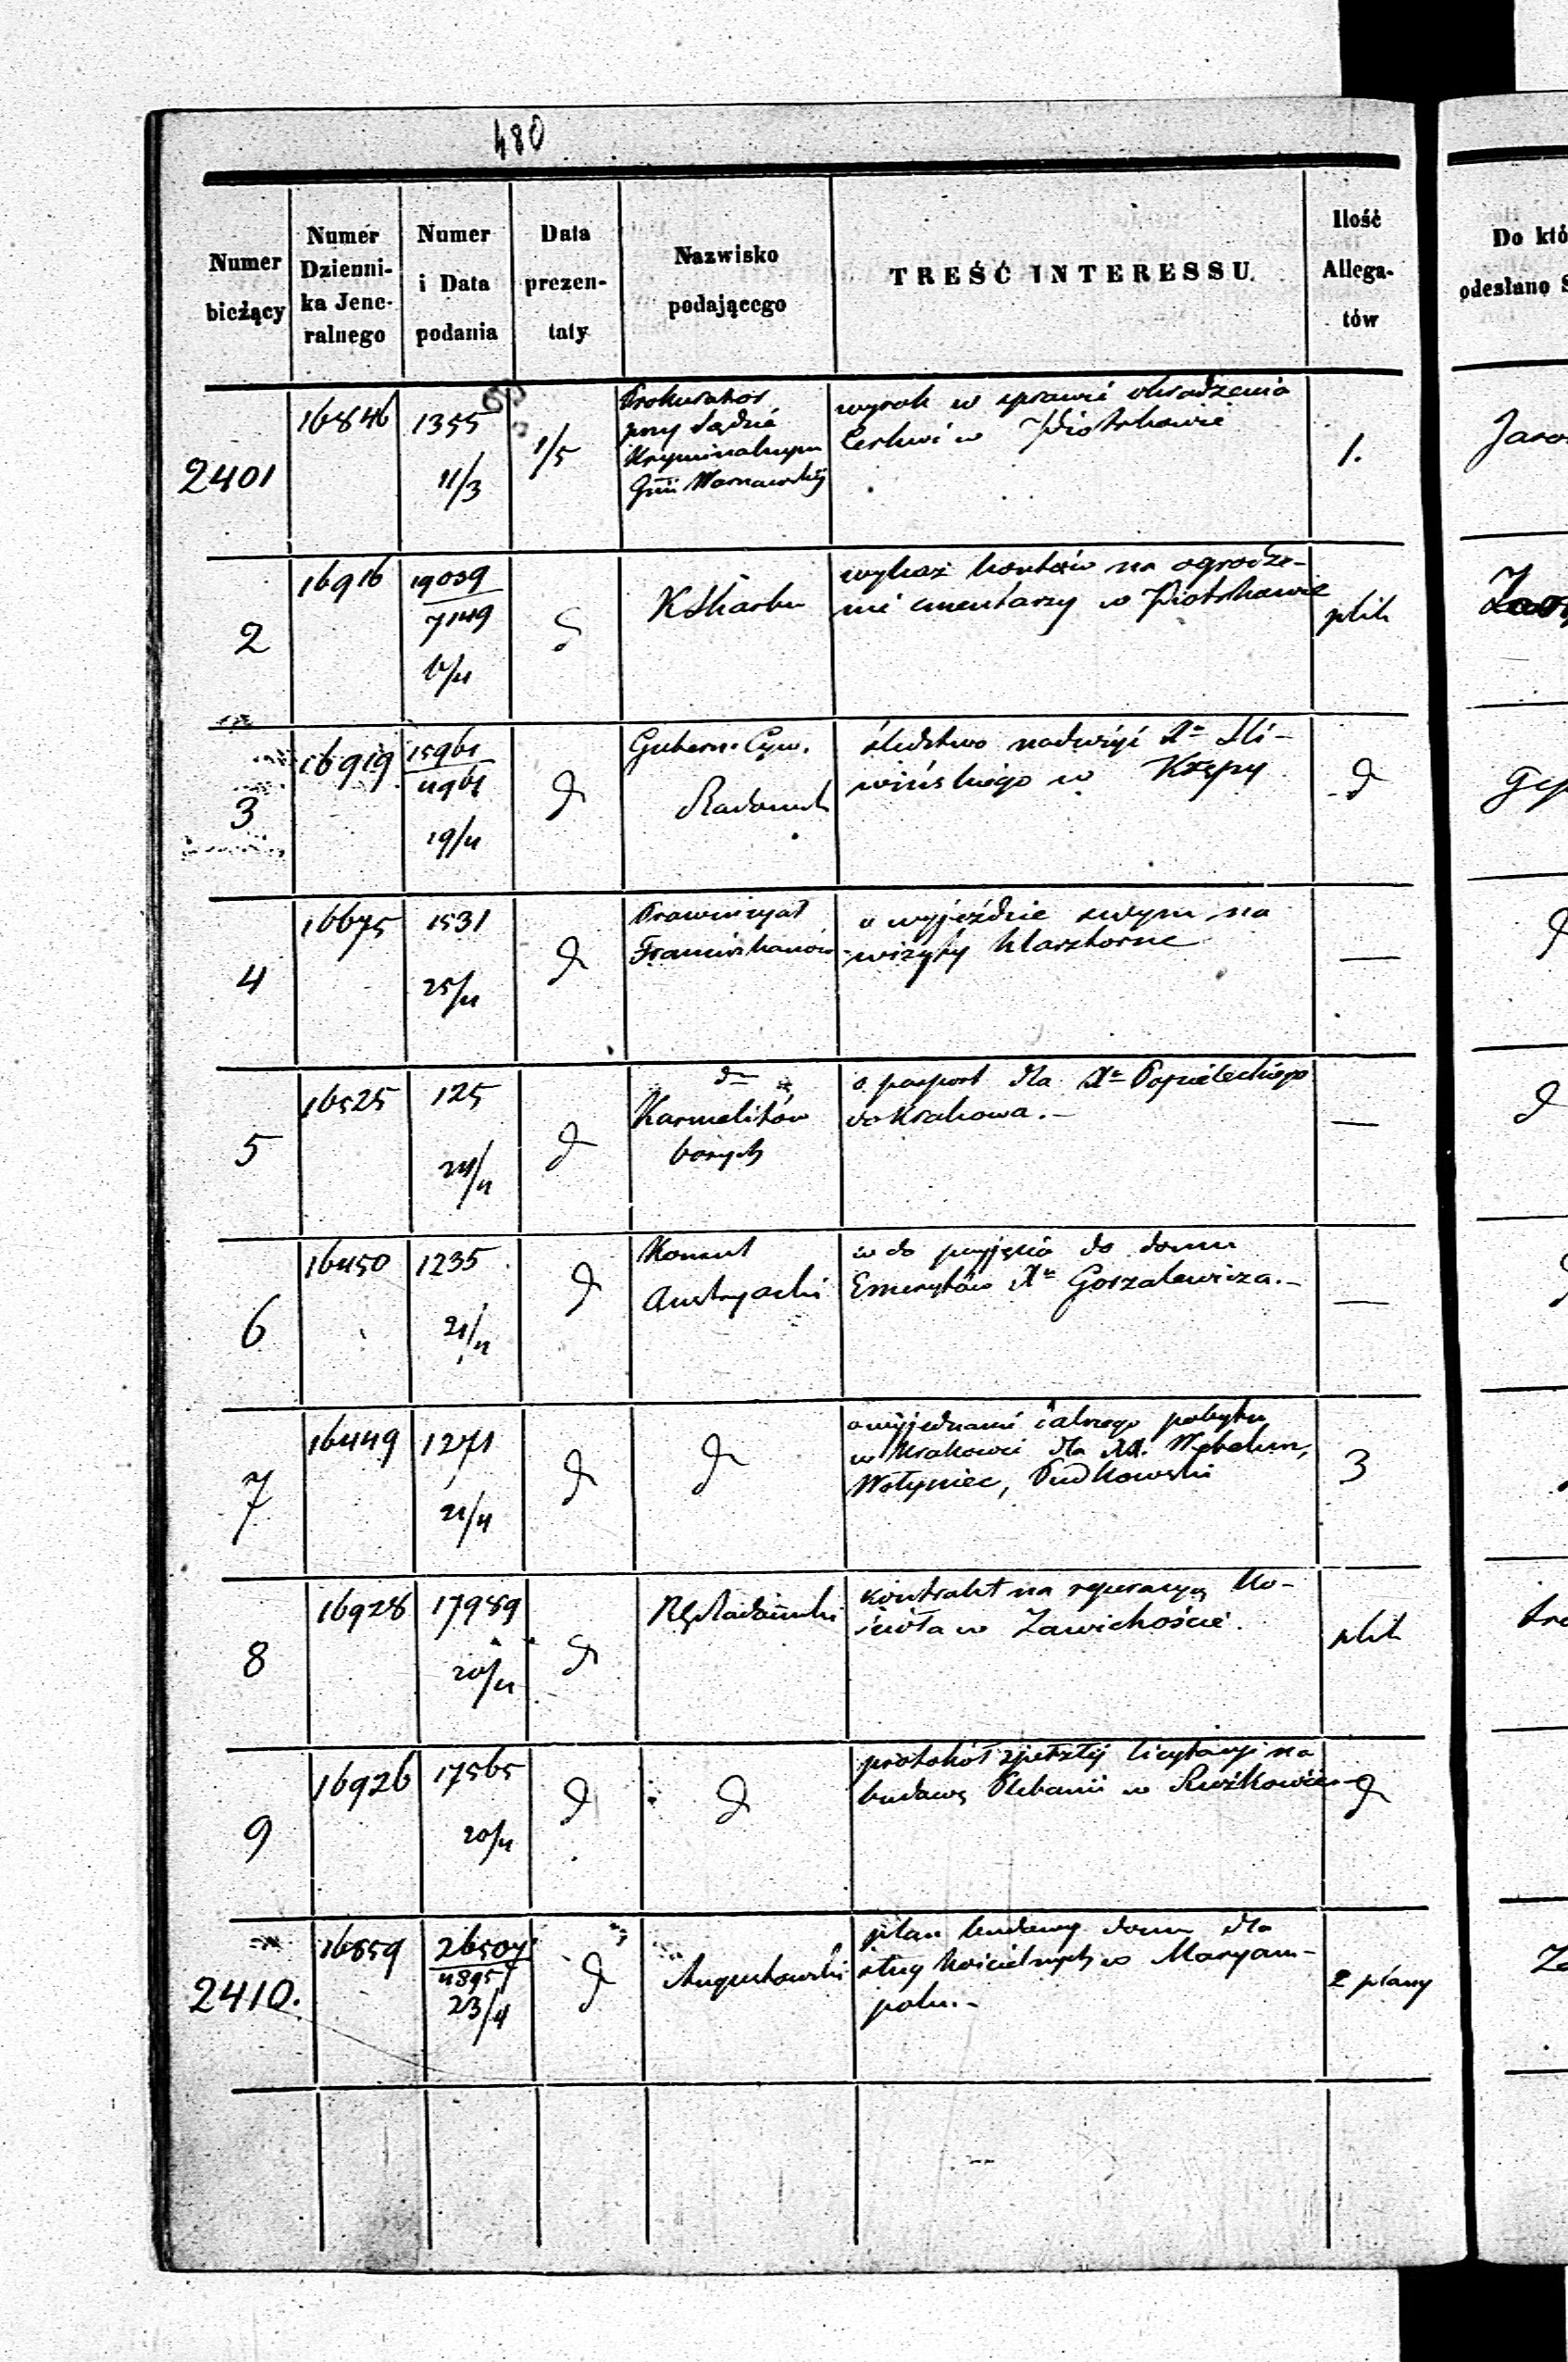 480
Numer bieżący
Numer Dzienni-ka Jene-ralnego
Numer i Data podania
Data prezen-taty
Nazwisko podającego
TREŚĆ INTERESSU.
Ilość Allega-tów
Do któ
odesłano S
2401
16846
1355
11/3
1/5
Prokurator
przy Sądzie
Kryminalnym
Gnii Warszawskiej
wyrok w sprawie okradzenia
Cerkwi w Piotrkowie
1.
2
16916
19039
7149
K Skarbu
wykaz kosztów na ogrodze-
nie cmentarzy w Piotrkowie
plik
3
16919
15961
4961
19/4
d
Gubern. Cyw.
Radomsk
śledztwo nadużyć Xa Śli-
wińskiego w Kępy
d
4
16675
1531
25/4
d
Prowincyał
Franciszkanów
o wyjeździe swym na
wizyty klasztorne
—
d
5
16525
125
24/4
d
d
Karmelitów
bosych
o paszport dla Xa
do Krakowa.—
—
d
6
16450
1235
21/4
d
Konsul
Austryacki
w do przyjęcia do domu
Emerytów Xa Gorzalewicza.—
—
7
16449
1271
21/4
d
d
o wyjednanie dalszego pobytu
w Krakowie dla XX.
Wołyniec, Pudkowski
3
8
16928
17989
20/4
d
RG Radomski
kontrakt na reperacyą Ko-
ścioła w Zawichoście.
plik
9
16926
17565
20/4
d
d
protokół spełzłej licytacyi na
budowę Plebanii w
d
2410.
16859
26507
48957
23/4
d
Augustowski
plan budowy domu dla
sług kościelnych w Maryam-
polu.—
2 plany